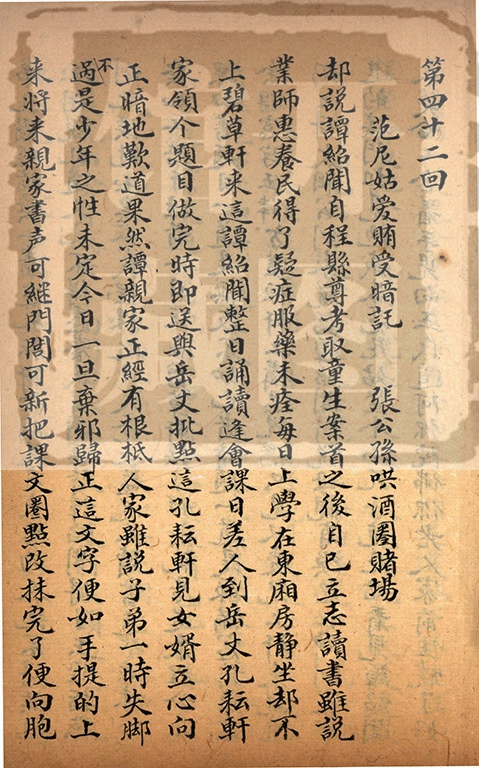 第四十二回
范尼姑爱賄受暗託　張公孫哄酒圈賭場
却說譚紹聞自程縣尊考取童生案首之後自己立志讀書雖說
業師惠養民得了疑症服藥未痊每日上學在東廂房静坐却不
上碧草軒来這譚紹聞整日誦讀逢會課日差人到岳丈孔耘軒
家領个題目做完時即送與岳丈批點這孔耘軒見女婿立心向
正暗地歎道果然譚親家正經有根柢人家雖說子弟一時失脚
不過是少年之性未定今日一旦棄邪歸正這文字便如手提的上
来將来親家書声可継門閭可新把課文圈點改抹完了便向胞